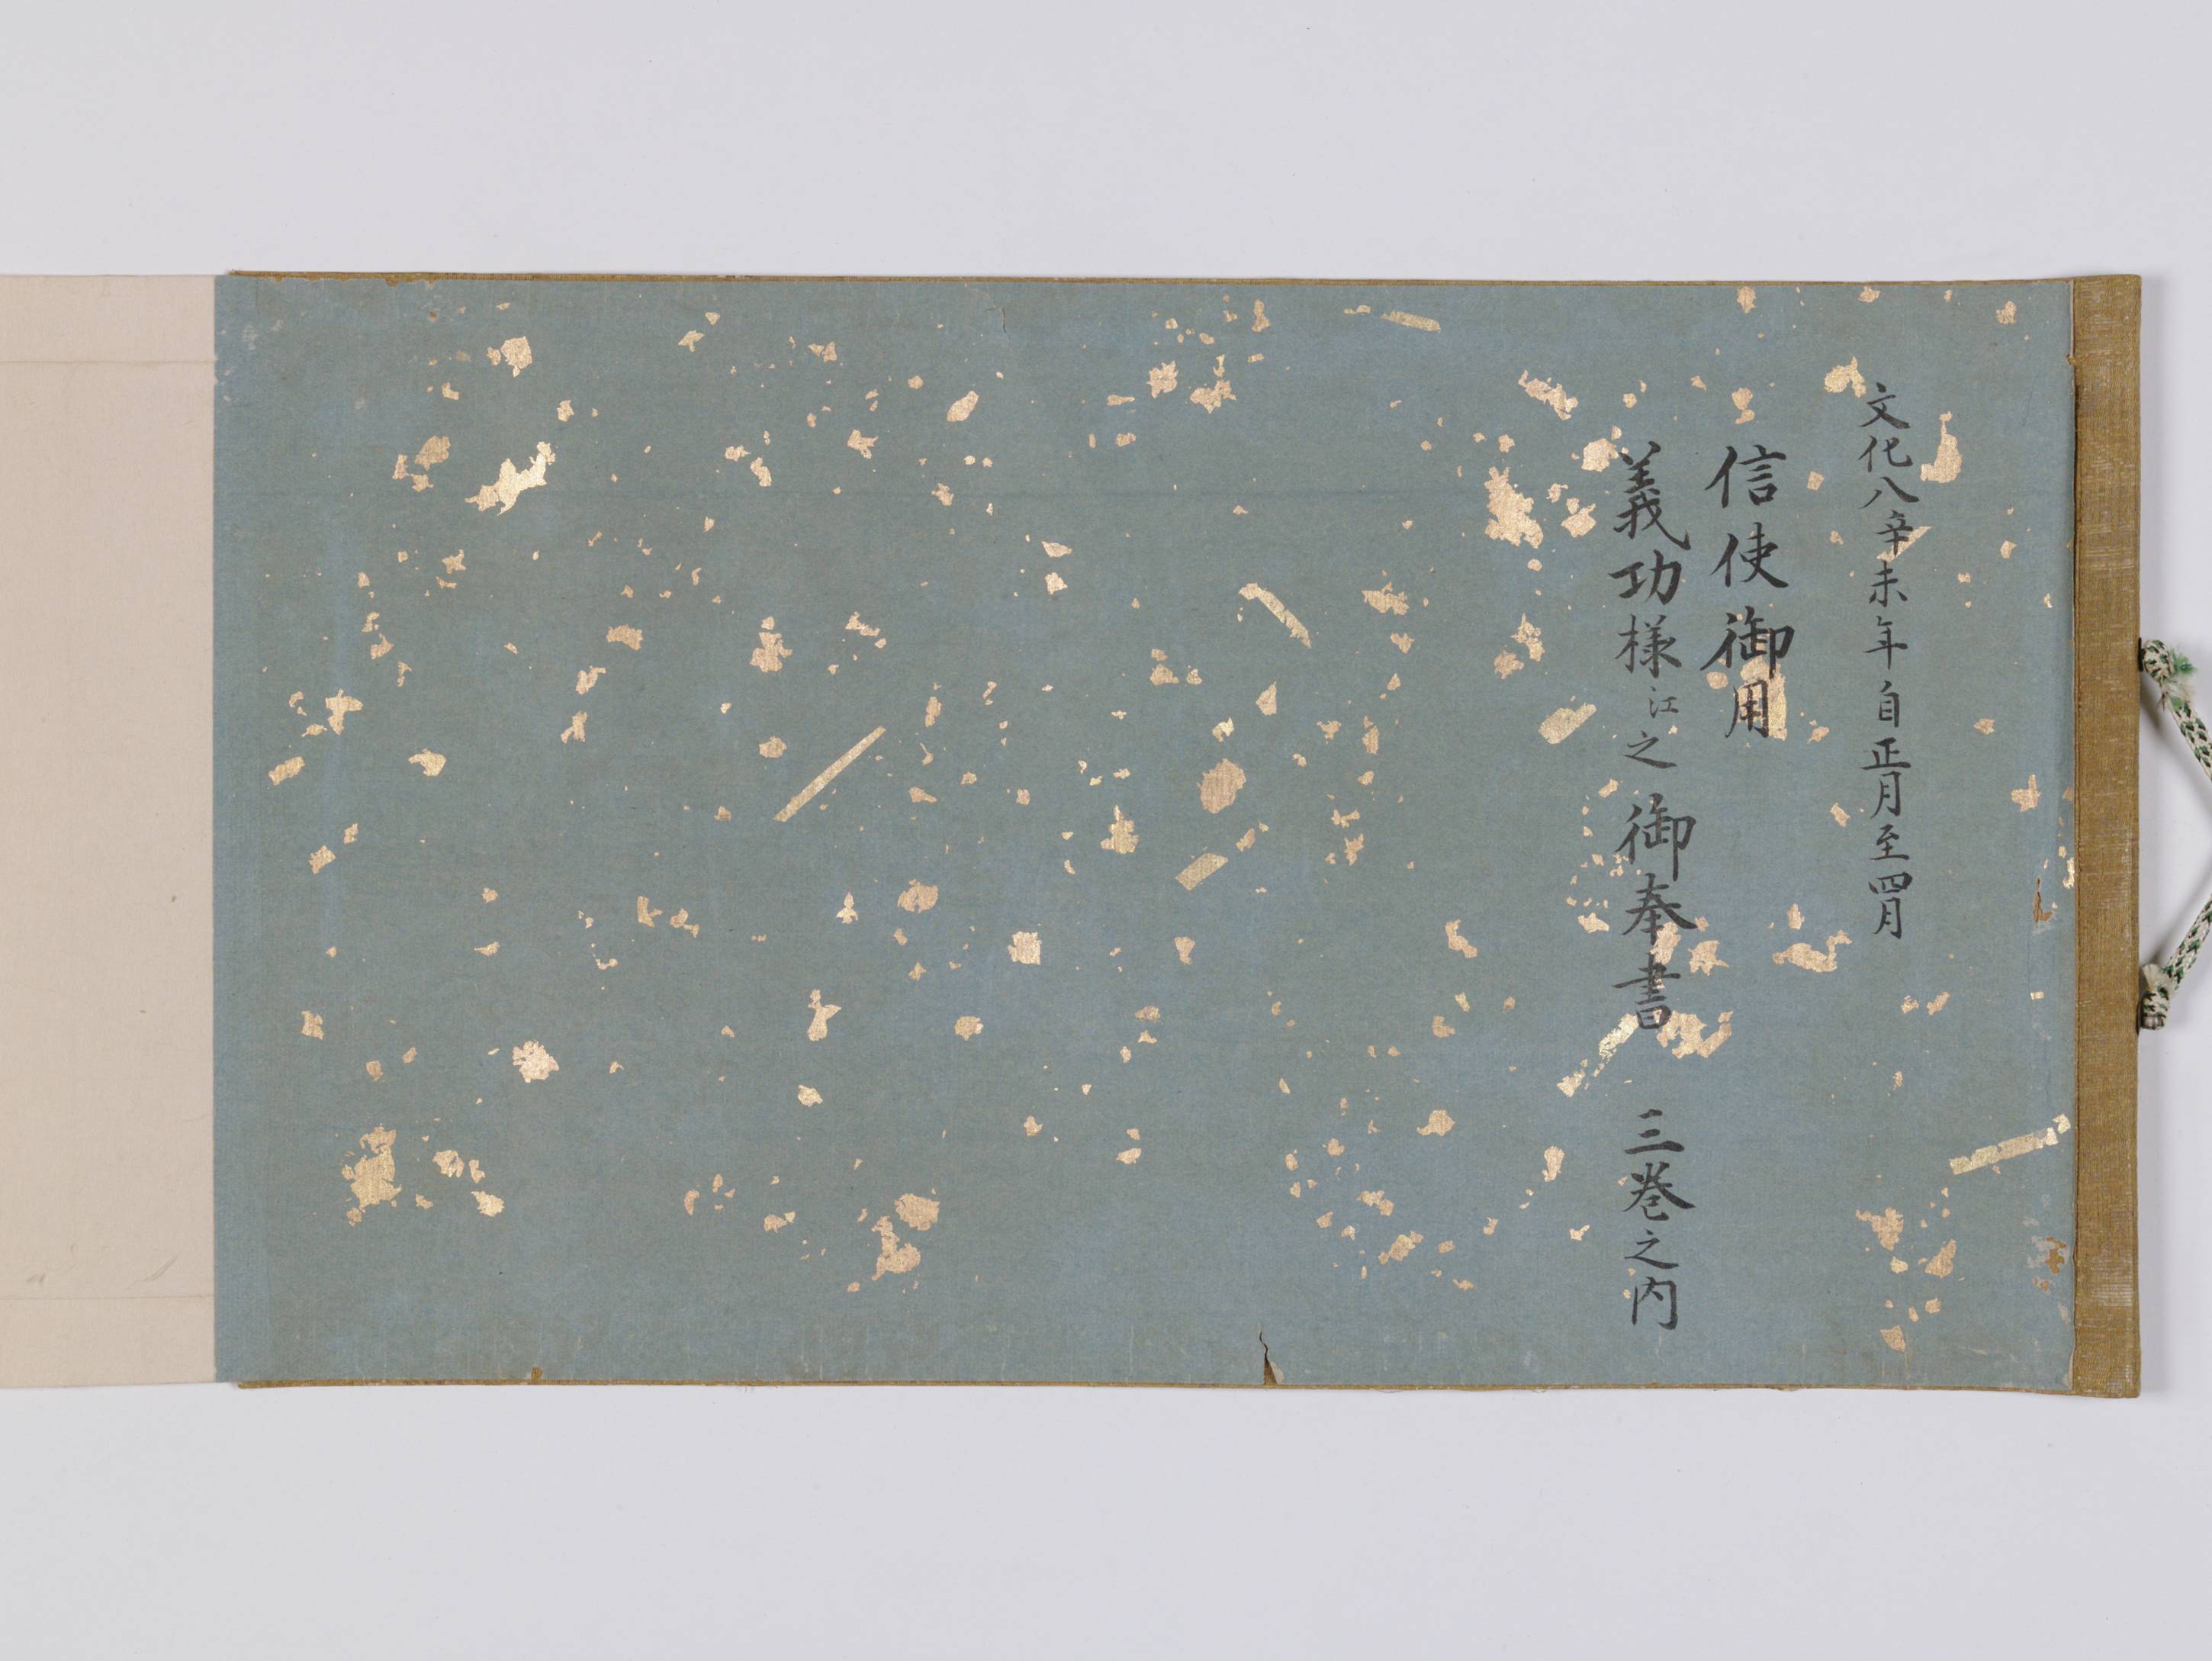 文化八辛未年自正月至四月
信使御用
義功様江之御奉書 三巻之内